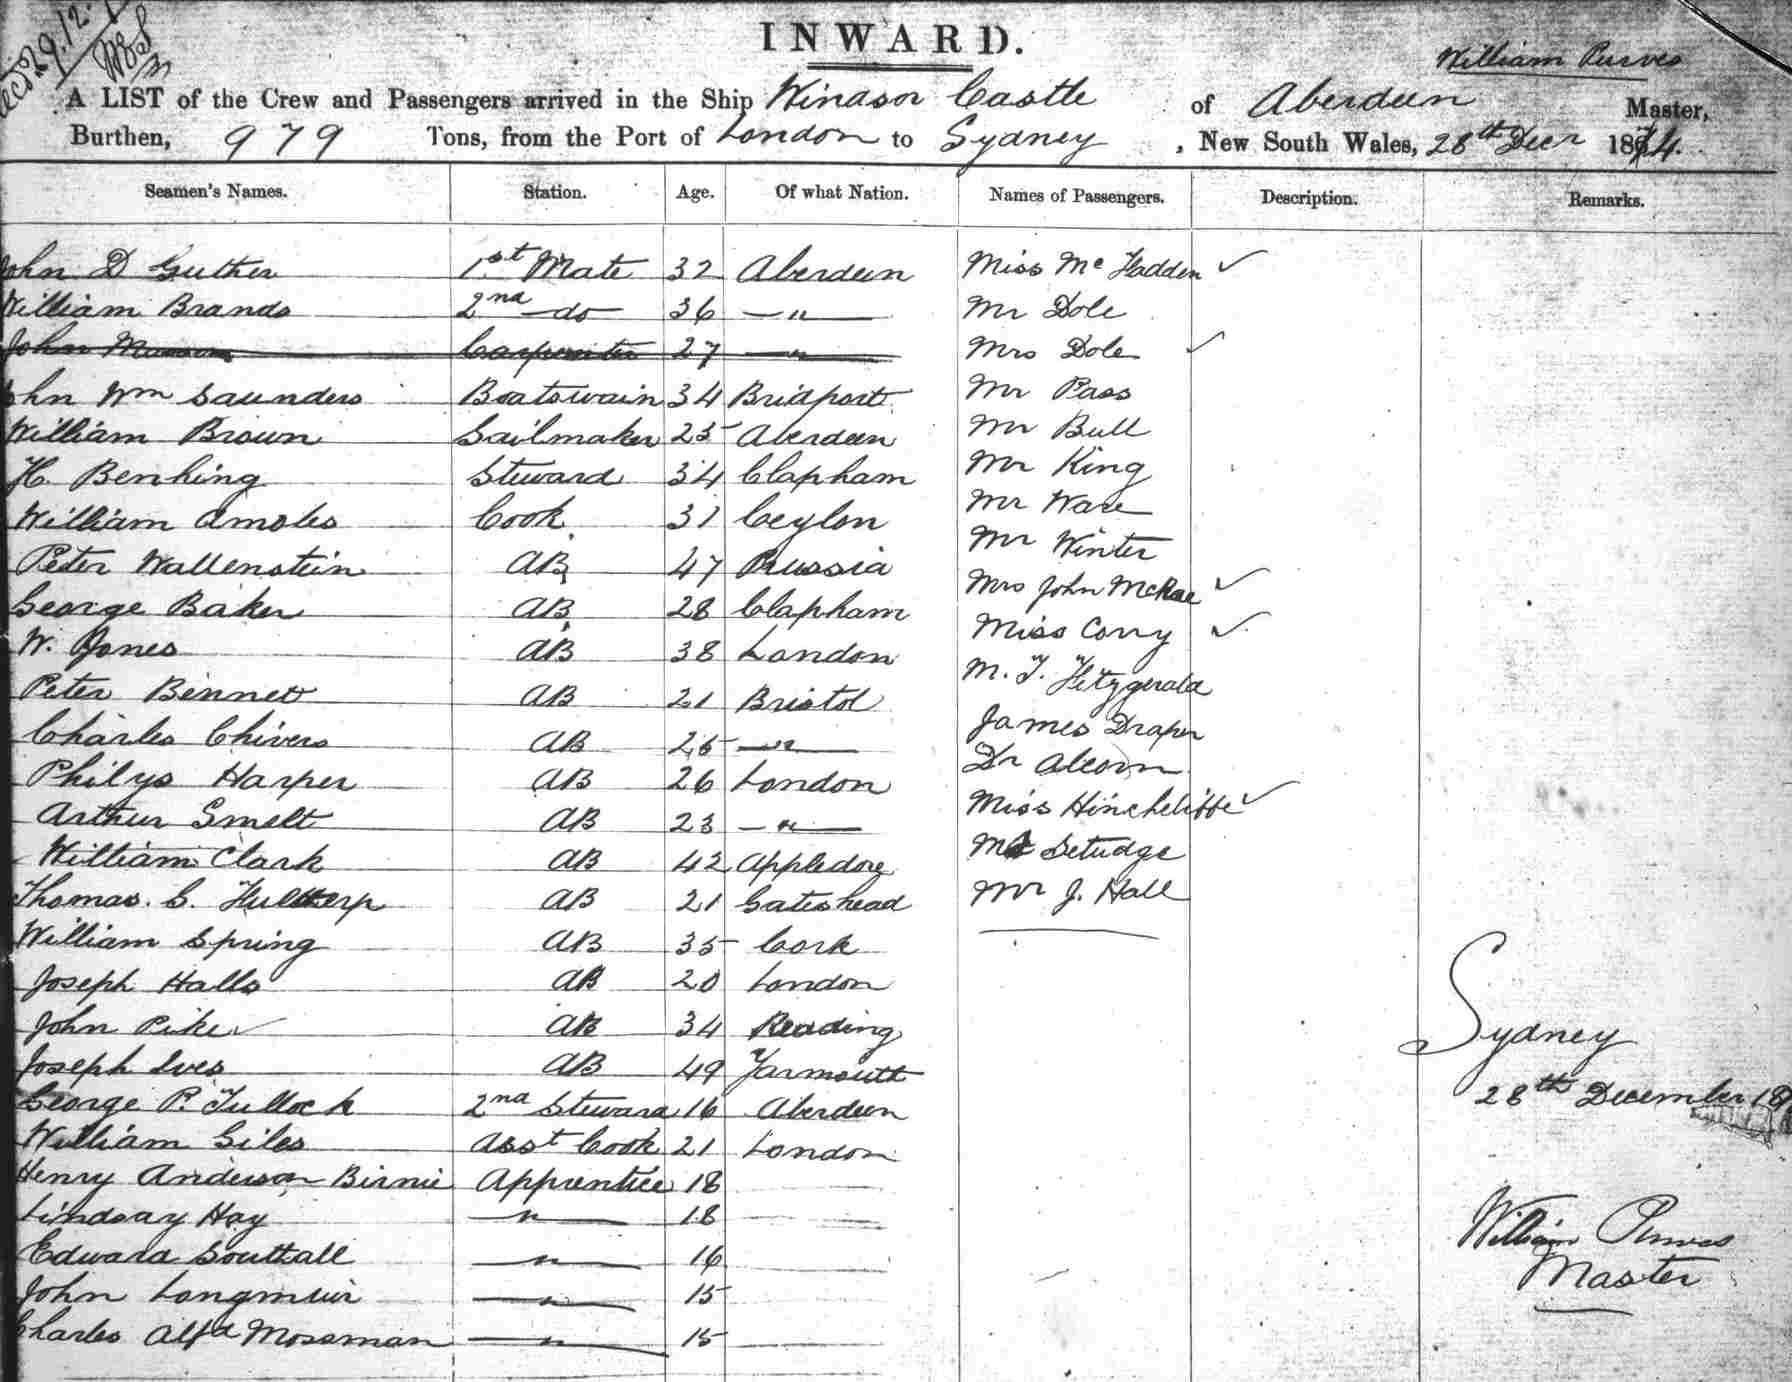 INWARD.
William Purves
A LIST of the Crew and Passengers arrived in the Ship Windsor Castle of Aberdeen Master,
Burthen, 979 Tons, from the Port of London to Sydney, New South Wales, 28th Decr 1874.
Seamen's Names. Station. Age. Of what Nation. Names of Passengers. Description. Remarks.
John D Guther 1st Mate 32 Aberdeen Miss Mc Fadden ✓
William Brands 2nd do 36 — " — Mr Dole
John Carpenter 27 — " — Mrs Dole ✓
John Wm Saunders Boatswain 34 Bridport Mr Pass
William Brown Sailmaker 25 Aberdeen Mr Bull
H. Benhing Steward 34 Clapham Mr King
William Amoles Cook 31 Ceylon Mr Ware
Peter Wallenstein AB 47 Russia Mr Winter
George Baker AB 28 Clapham Mrs John McRae ✓
W. Jones AB 38 London Miss Corry ✓
Peter Bennett AB 21 Bristol M. T. Fitzgerald
Charles Chivers AB 25 — " — James Draper
Philys Harper AB 26 London Dr Alcorn
Arthur Smelt AB 23 — " — Miss Hinchcliffe ✓
William Clark AB 42 Appledore Setudge
Thomas. G. AB 21 Gateshead Mr J. Hall
William Spring AB 35 Cork
Joseph Halls AB 20 London
John Pike ✓ AB 34 Reading
Joseph Ives AB 49 Yarmouth
George P. Tullock 2nd Steward 16 Aberdeen
William Giles Asst Cook 21 London
Henry Anderson Birnie Apprentice 18
Lindsay Hay — " — 18
Edward Southall — " — 16
John Longmuir — " — 15
Charles Alfd Mossman — " — 15
Sydney
28th December 18
William Purves
Master